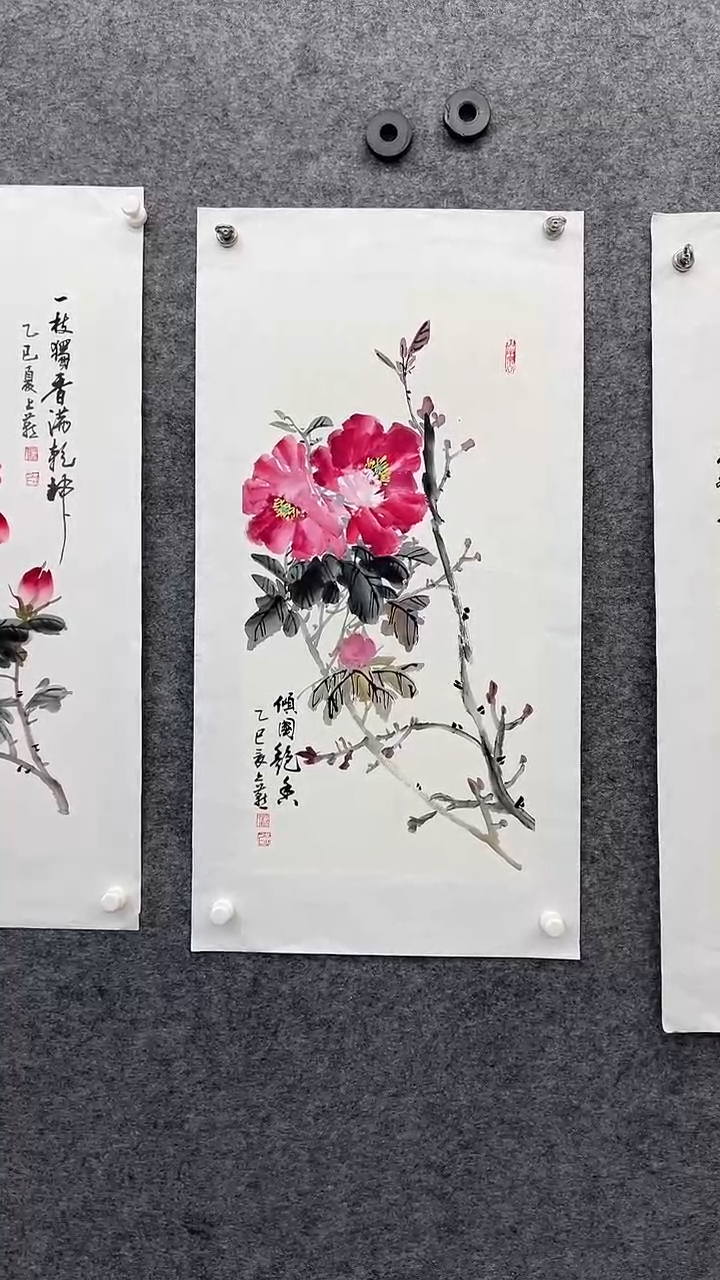 一枝獨香滿乾坤
乙巳夏上
傾國艷香
乙巳夏上